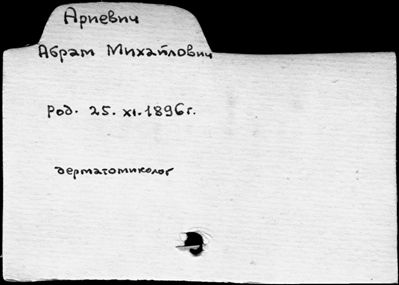 Ариевич
Абрам Михайлович
Род. 25. XI. 1896 г.
дерматомиколог